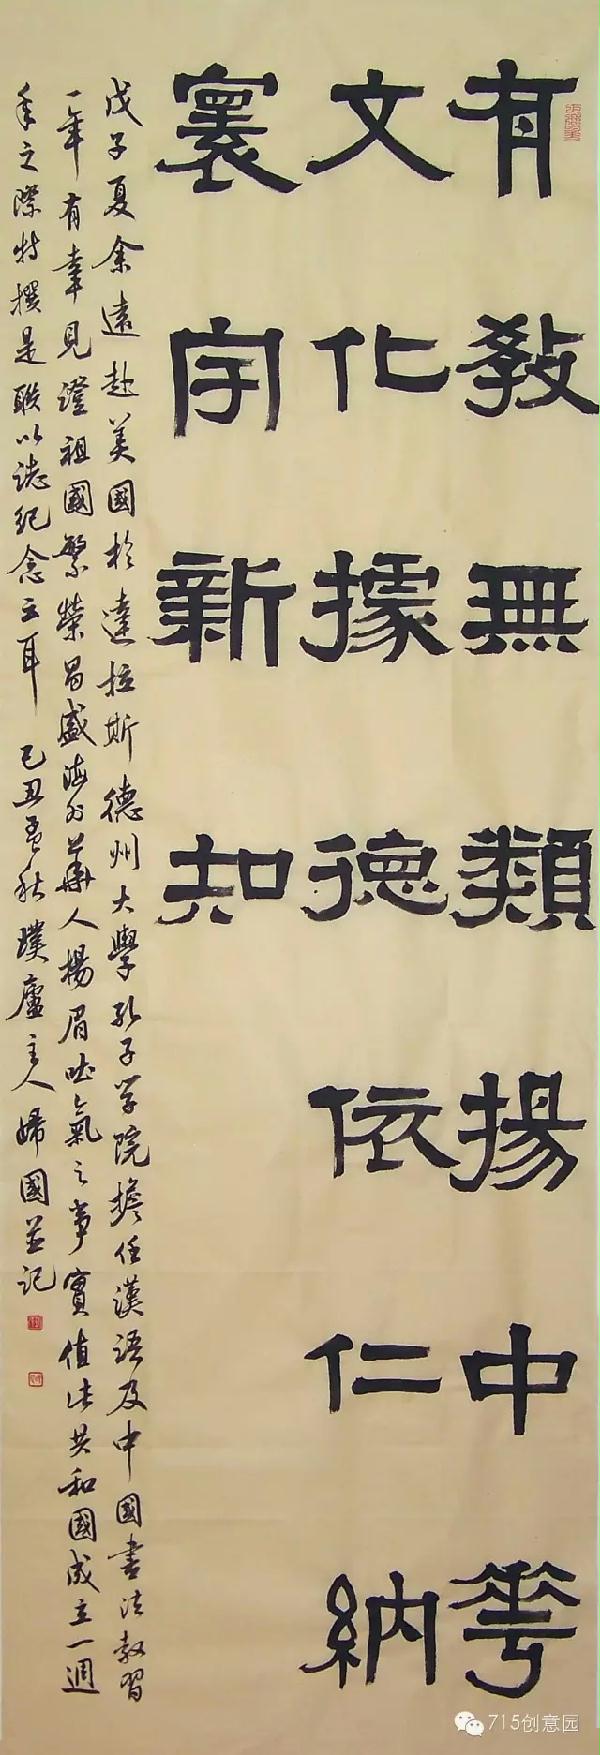 有教無類揚中華
文化據德依仁納
寰宇新知
戊子夏余遠赴美國於達拉斯德州大學孔子学院擔任漢語及中國書法教習
一年有幸見證祖國繁榮昌盛海外華人揚眉吐氣之事實值此共和國成立一週
年之際特撰是聯以誌紀念云耳 己丑孟秋璞廬主人歸國並記
715创意园